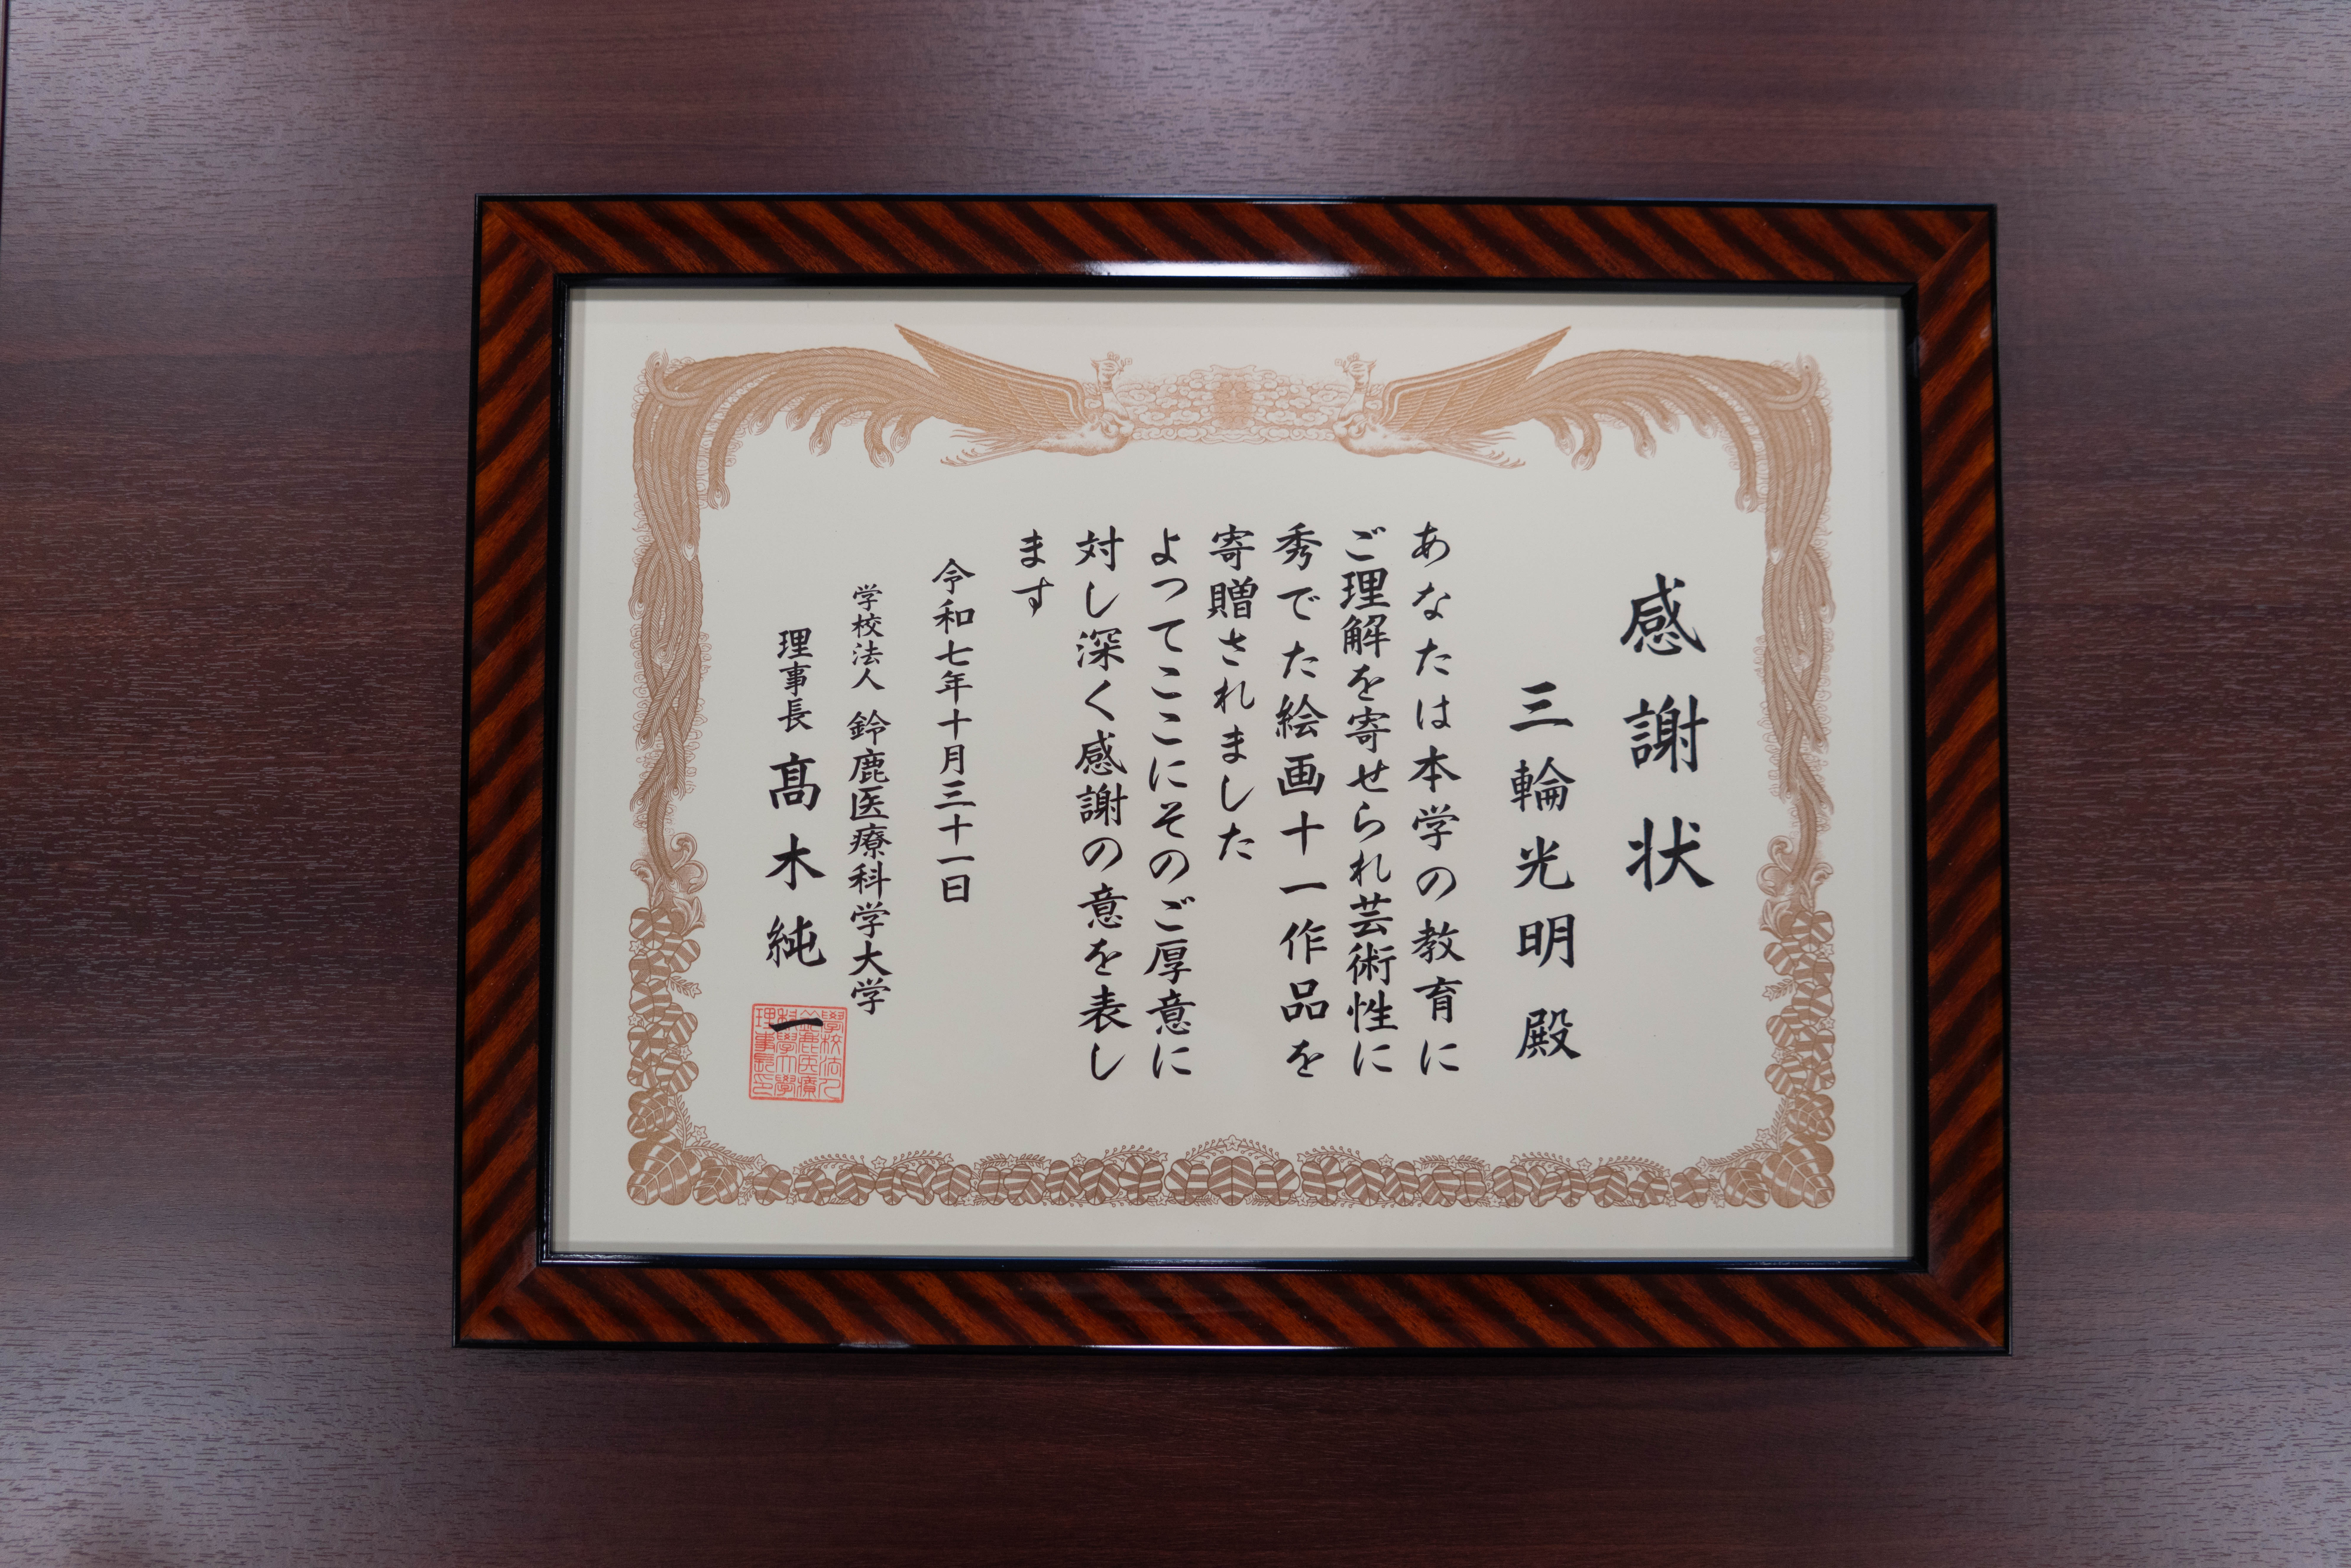 感謝状
三輪光明 殿
あなたは本学の教育に
ご理解を寄せられ芸術性に
秀でた絵画十一作品を
寄贈されました
よってここにそのご厚意に
対し深く感謝の意を表し
ます
令和七年十月三十一日
学校法人 鈴鹿医療科学大学
理事長 髙木純一
學校法人
鈴鹿医療
科學大學
理事長印